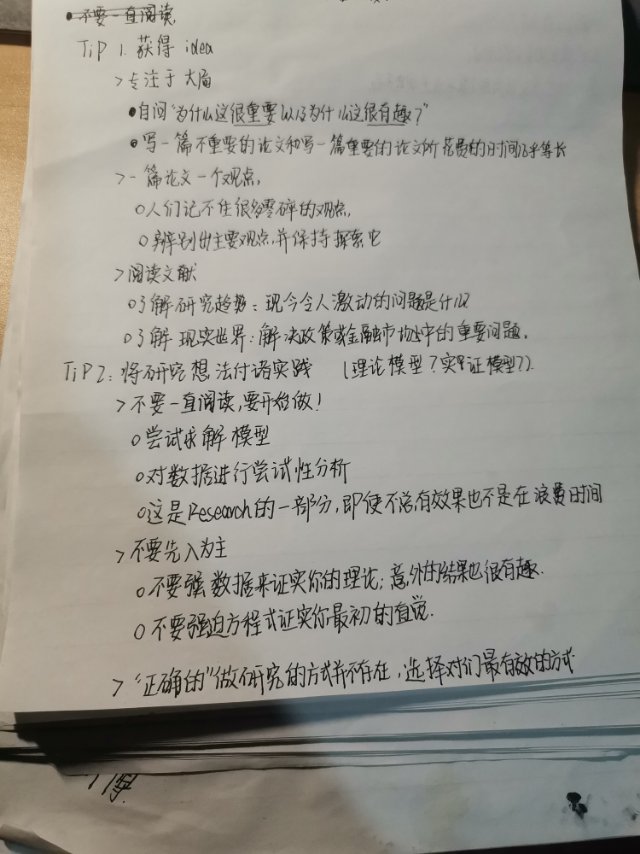 • 不要一直阅读,
TiP 1. 获得 idea
> 专注于大局
• 自问“为什么这很重要以及为什么这很有趣?”
• 写一篇不重要的论文和写一篇重要的论文所花费的时间几乎等长
> 一篇论文一个观点,
o 人们记不住很多零碎的观点,
o 辨别出主要观点,并保持探索它
> 阅读文献
o 了解研究趋势: 现今令人激动的问题是什么
o 了解现实世界: 解决政策或金融市场中的重要问题.
TiP 2: 将研究想法付诸实践 (理论模型?实证模型?).
> 不要一直阅读,要开始做!
o 尝试求解模型
o 对数据进行尝试性分析
o 这是Research的一部分,即使不总有效果也不是在浪费时间
> 不要先入为主
o 不要强数据来证实你的理论; 意外的结果也很有趣.
o 不要强迫方程式证实你最初的直觉.
> “正确的”做研究的方式并不存在,选择对们最有效的方式